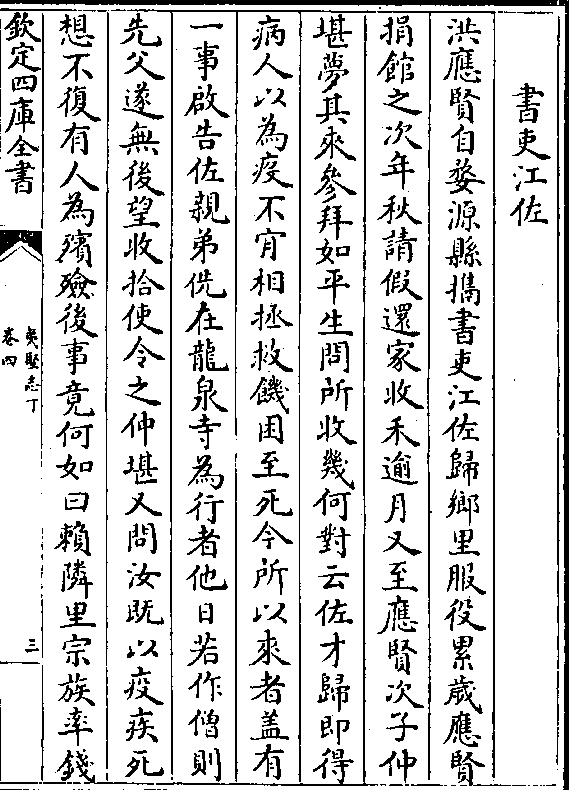 書吏江佐
洪應賢自婺源縣攜書吏江佐歸鄉里服役累歲應賢
捐館之次年秋請假還家收禾逾月又至應賢次子仲
堪夢其來參拜如平生問所收幾何對云佐才歸即得
病人以為疫不肯相拯救饑困至死今所以來者蓋有
一事啟告佐親弟侁在龍泉寺為行者他日若作僧則
先父遂無後望收拾使令之仲堪又問汝既以疫疾死
想不復有人為殯殮後事竟何如曰賴隣里宗族率錢
欽定四庫全書
夷堅志丁
卷四
三